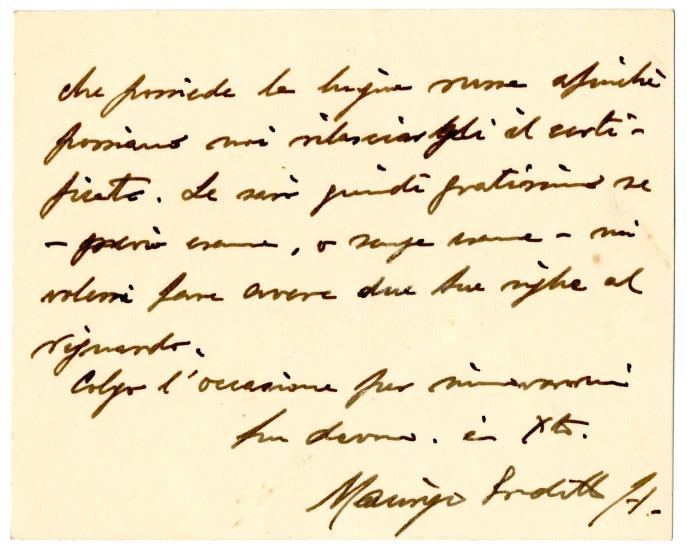 che possiede la lingua russa affinchè
possiamo noi rilasciargli il certi-
ficato. Le sarò quindi gratissimo se
- previo esame, o senza esame - mi
volesse fare avere due sue righe al
riguardo.
Colgo l'occasione per rinnovarmi
suo devmo. in Xto.
Maurizio